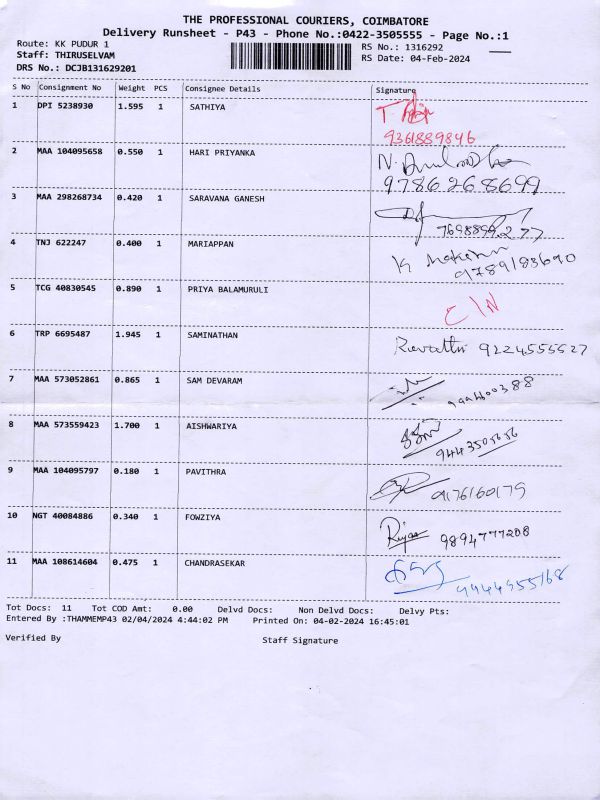 THE PROFESSIONAL COURIERS, COIMBATORE
Delivery Runsheet - P43 - Phone No.:0422-3505555 - Page No.:1
Route: KK PUDUR 1
Staff: THIRUSELVAM
DRS No.: DCJB131629201
RS No.: 1316292
RS Date: 04-Feb-2024
S No Consignment No Weight PCS Consignee Details Signature
1 DPI 5238930 1.595 1 SATHIYA
9361889846
2 MAA 104095658 0.550 1 HARI PRIYANKA
9786268699
3 MAA 298268734 0.420 1 SARAVANA GANESH
4 TNJ 622247 0.400 1 MARIAPPAN
9789183690
5 TCG 40830545 0.890 1 PRIYA BALAMURULI
C/N
6 TRP 6695487 1.945 1 SAMINATHAN
Revathi 9224555527
7 MAA 573052861 0.865 1 SAM DEVARAM
8 MAA 573559423 1.700 1 AISHWARIYA
9443505656
9 MAA 104095797 0.180 1 PAVITHRA
9176160179
10 NGT 40084886 0.340 1 FOWZIYA
9894777208
11 MAA 108614604 0.475 1 CHANDRASEKAR
9444955168
Tot Docs: 11 Tot COD Amt: 0.00 Delvd Docs: Non Delvd Docs: Delvy Pts:
Entered By :THAMMEMP43 02/04/2024 4:44:02 PM Printed On: 04-02-2024 16:45:01
Verified By Staff Signature